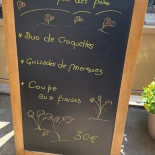 * Duo de Croquettes
* Grillades de Marquis
* Coupe
aux fraises
30€